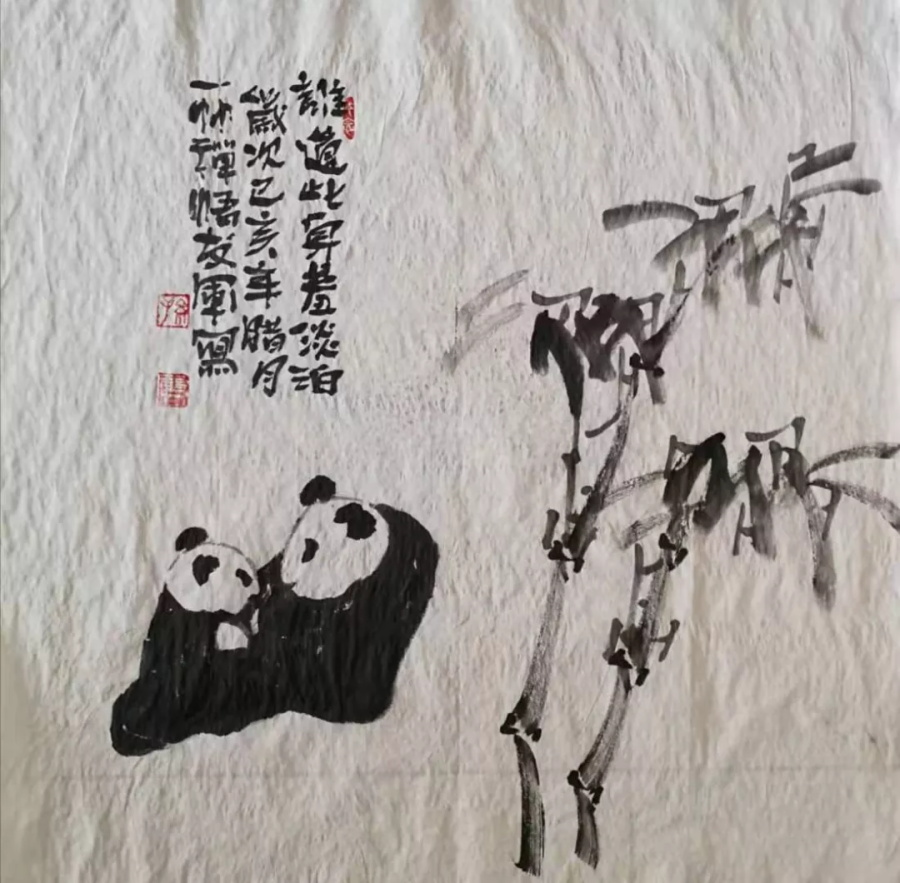 誰道此身羞淡泊
歲次己亥年腊月
一林禪悟友軍寫